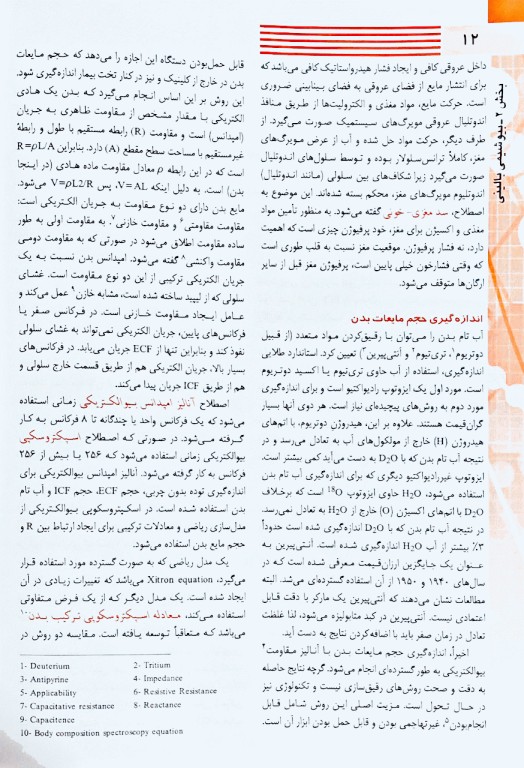 ۱۲
بخش ۲ ـ بیوشیمی بالینی
داخل عروقی کافی و ایجاد فشار هیدرواستاتیک کافی می‌باشد که
برای انتشار مایع از فضای عروقی به فضای بینابینی ضروری
است. حرکت مایع، مواد مغذی و الکترولیت‌ها از طریق منافذ
اندوتلیال عروقی مویرگ‌های سیستمیک صورت می‌گیرد. از
طرف دیگر، حرکت مواد حل شده و آب از عرض مویرگ‌های
مغز، کاملاً ترانس‌سلولار بوده و توسط سلول‌های اندوتلیال
صورت می‌گیرد زیرا شکاف‌های بین سلولی (مانند اندوتلیال)
اندوتلیوم مویرگ‌های مغز، محکم بسته شده‌اند. این موضوع به
اصطلاح، سد مغزی- خونی گفته می‌شود. به منظور تأمین مواد
مغذی و اکسیژن برای مغز، خود پرفیوژن چیزی است که اهمیت
دارد، نه فشار پرفیوژن. موقعیت مغز نسبت به قلب طوری است
که وقتی فشارخون خیلی پایین است، پرفیوژن مغز قبل از سایر
ارگان‌ها متوقف می‌شود.
اندازه‌گیری حجم مایعات بدن
آب تام بدن را می‌توان با رقیق‌کردن مواد متعدد (از قبیل
دوتریوم۱، تری‌تیوم۲ و آنتی‌پیرین۳) تعیین کرد. استاندارد طلایی
اندازه‌گیری، استفاده از آب حاوی تری‌تیوم یا اکسید دوتریوم
است. مورد اول یک ایزوتوپ رادیواکتیو است و برای اندازه‌گیری
مورد دوم به روش‌های پیچیده‌ای نیاز است. هر دوی آنها بسیار
گران‌قیمت هستند. علاوه بر این، هیدروژنِ دوتریوم، با اتم‌های
هیدروژن (H) خارج از مولکول‌های آب به تعادل می‌رسد و در
نتیجه آب تام بدن که با D2O به دست می‌آید کمی بیشتر است.
ایزوتوپ غیررادیواکتیو دیگری که برای اندازه‌گیری آب تام بدن
استفاده می‌شود، H2O حاوی ایزوتوپ 18O است که برخلاف
D2O با اتم‌های اکسیژن (O) خارج از H2O به تعادل نمی‌رسد.
در نتیجه آب تام بدن که با D2O اندازه‌گیری شده است حدوداً
۳٪ بیشتر از آب H2O اندازه‌گیری شده است. آنتی‌پیرین به
عنوان یک جایگزین ارزان‌قیمت معرفی شده است که در
سال‌های ۱۹۴۰ و ۱۹۵۰ از آن استفاده گسترده‌ای می‌شد. البته
مطالعات نشان می‌دهند که آنتی‌پیرین یک مارکر با دقت قابل
اعتمادی نیست. آنتی‌پیرین در کبد متابولیزه می‌شود، لذا غلظت
تعادل در زمان صفر باید با اضافه‌کردن نتایج به دست آید.
اخیراً، اندازه‌گیری حجم مایعات بدن با آنالیز مقاومت۴
بیوالکتریکی به طور گسترده‌ای انجام می‌شود. گرچه نتایج حاصله
به دقت و صحت روش‌های رقیق‌سازی نیست و تکنولوژی نیز
در حال تحول است. مزیت اصلی این روش شامل قابل
انجام‌بودن۵، غیرتهاجمی بودن و قابل حمل بودن ابزار آن است.
قابل حمل‌بودن دستگاه این اجازه را می‌دهد که حجم مایعات
بدن در خارج از کلینیک و نیز در کنار تخت بیمار اندازه‌گیری شود.
این روش بر این اساس انجام می‌گیرد که بدن یک هادی
الکتریکی با مقدار مشخص از مقاومت ظاهری به جریان
(امپدانس) است و مقاومت (R) رابطه مستقیم با طول و رابطهٔ
غیرمستقیم با مساحت سطح مقطع (A) دارد. بنابراین R=ρL/A
است که در این رابطه ρ معادل مقاومت ماده هادی (در اینجا
بدن) است. به دلیل اینکه V=AL، پس V=ρL2/R می‌شود.
مایع بدن دارای دو نوع مقاومت به جریان الکتریکی است:
مقاومت مقاومتی۶ و مقاومت خازنی۷. به مقاومت اولی به طور
ساده مقاومت اطلاق می‌شود در صورتی که به مقاومت دومی
مقاومت واکنشی۸ گفته می‌شود. امپدانس بدن نسبت به یک
جریان الکتریکی ترکیبی از این دو نوع مقاومت است. غشای
سلولی که از لیپید ساخته شده است، مشابه خازن۹ عمل می‌کند و
عامل ایجاد مقاومت خازنی است. در فرکانس صفر یا
فرکانس‌های پایین، جریان الکتریکی نمی‌تواند به غشای سلولی
نفوذ کند و بنابراین تنها از ECF جریان می‌یابد. در فرکانس‌های
بسیار بالا، جریان الکتریکی هم از طریق قسمت خارج سلولی و
هم از طریق ICF جریان پیدا می‌کند.
اصطلاح آنالیز امپدانس بیوالکتریکی زمانی استفاده
می‌شود که یک فرکانس واحد یا چندگانه تا ۸ فرکانس به کار
گرفته می‌شود. در صورتی که اصطلاح اسپکتروسکپی
بیوالکتریکی زمانی استفاده می‌شود که ۲۵۶ یا بیش از ۲۵۶
فرکانس به کار گرفته می‌شود. آنالیز امپدانس بیوالکتریکی برای
اندازه‌گیری توده بدون چربی، حجم ECF، حجم ICF و آب تام
بدن استفاده شده است. در اسپکتروسکوپی بیوالکتریکی از
مدل‌سازی ریاضی و معادلات ترکیبی برای ایجاد ارتباط بین R و
حجم مایع بدن استفاده می‌شود.
یک مدل ریاضی که به صورت گسترده مورد استفاده قرار
می‌گیرد، Xitron equation می‌باشد که تغییرات زیادی در آن
ایجاد شده است. یک مدل دیگر که از یک فرض متفاوتی
استفاده می‌کند، معادله اسپکتروسکوپی ترکیب بدن۱۰
می‌باشد که متعاقباً توسعه یافته است. مقایسه دو روش در
1- Deuterium 2- Tritium
3- Antipyrine 4- Impedance
5- Applicability 6- Resistive Resistance
7- Capacitative resistance 8- Reactance
9- Capacitence
10- Body composition spectroscopy equation